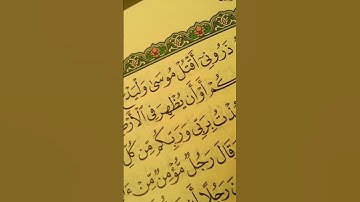 ذَرُونِىٓ أَقْتُلْ مُوسَىٰ وَلْيَدْ
كُمْ أَوْ أَن يُظْهِرَ فِى ٱلْأَرْ
ذْتُ بِرَبِّى وَرَبِّكُم مِّن كُلِّ
وَقَالَ رَجُلٌ مُّؤْمِنٌ مِّنْ ءَ
رَجُلًا أَن